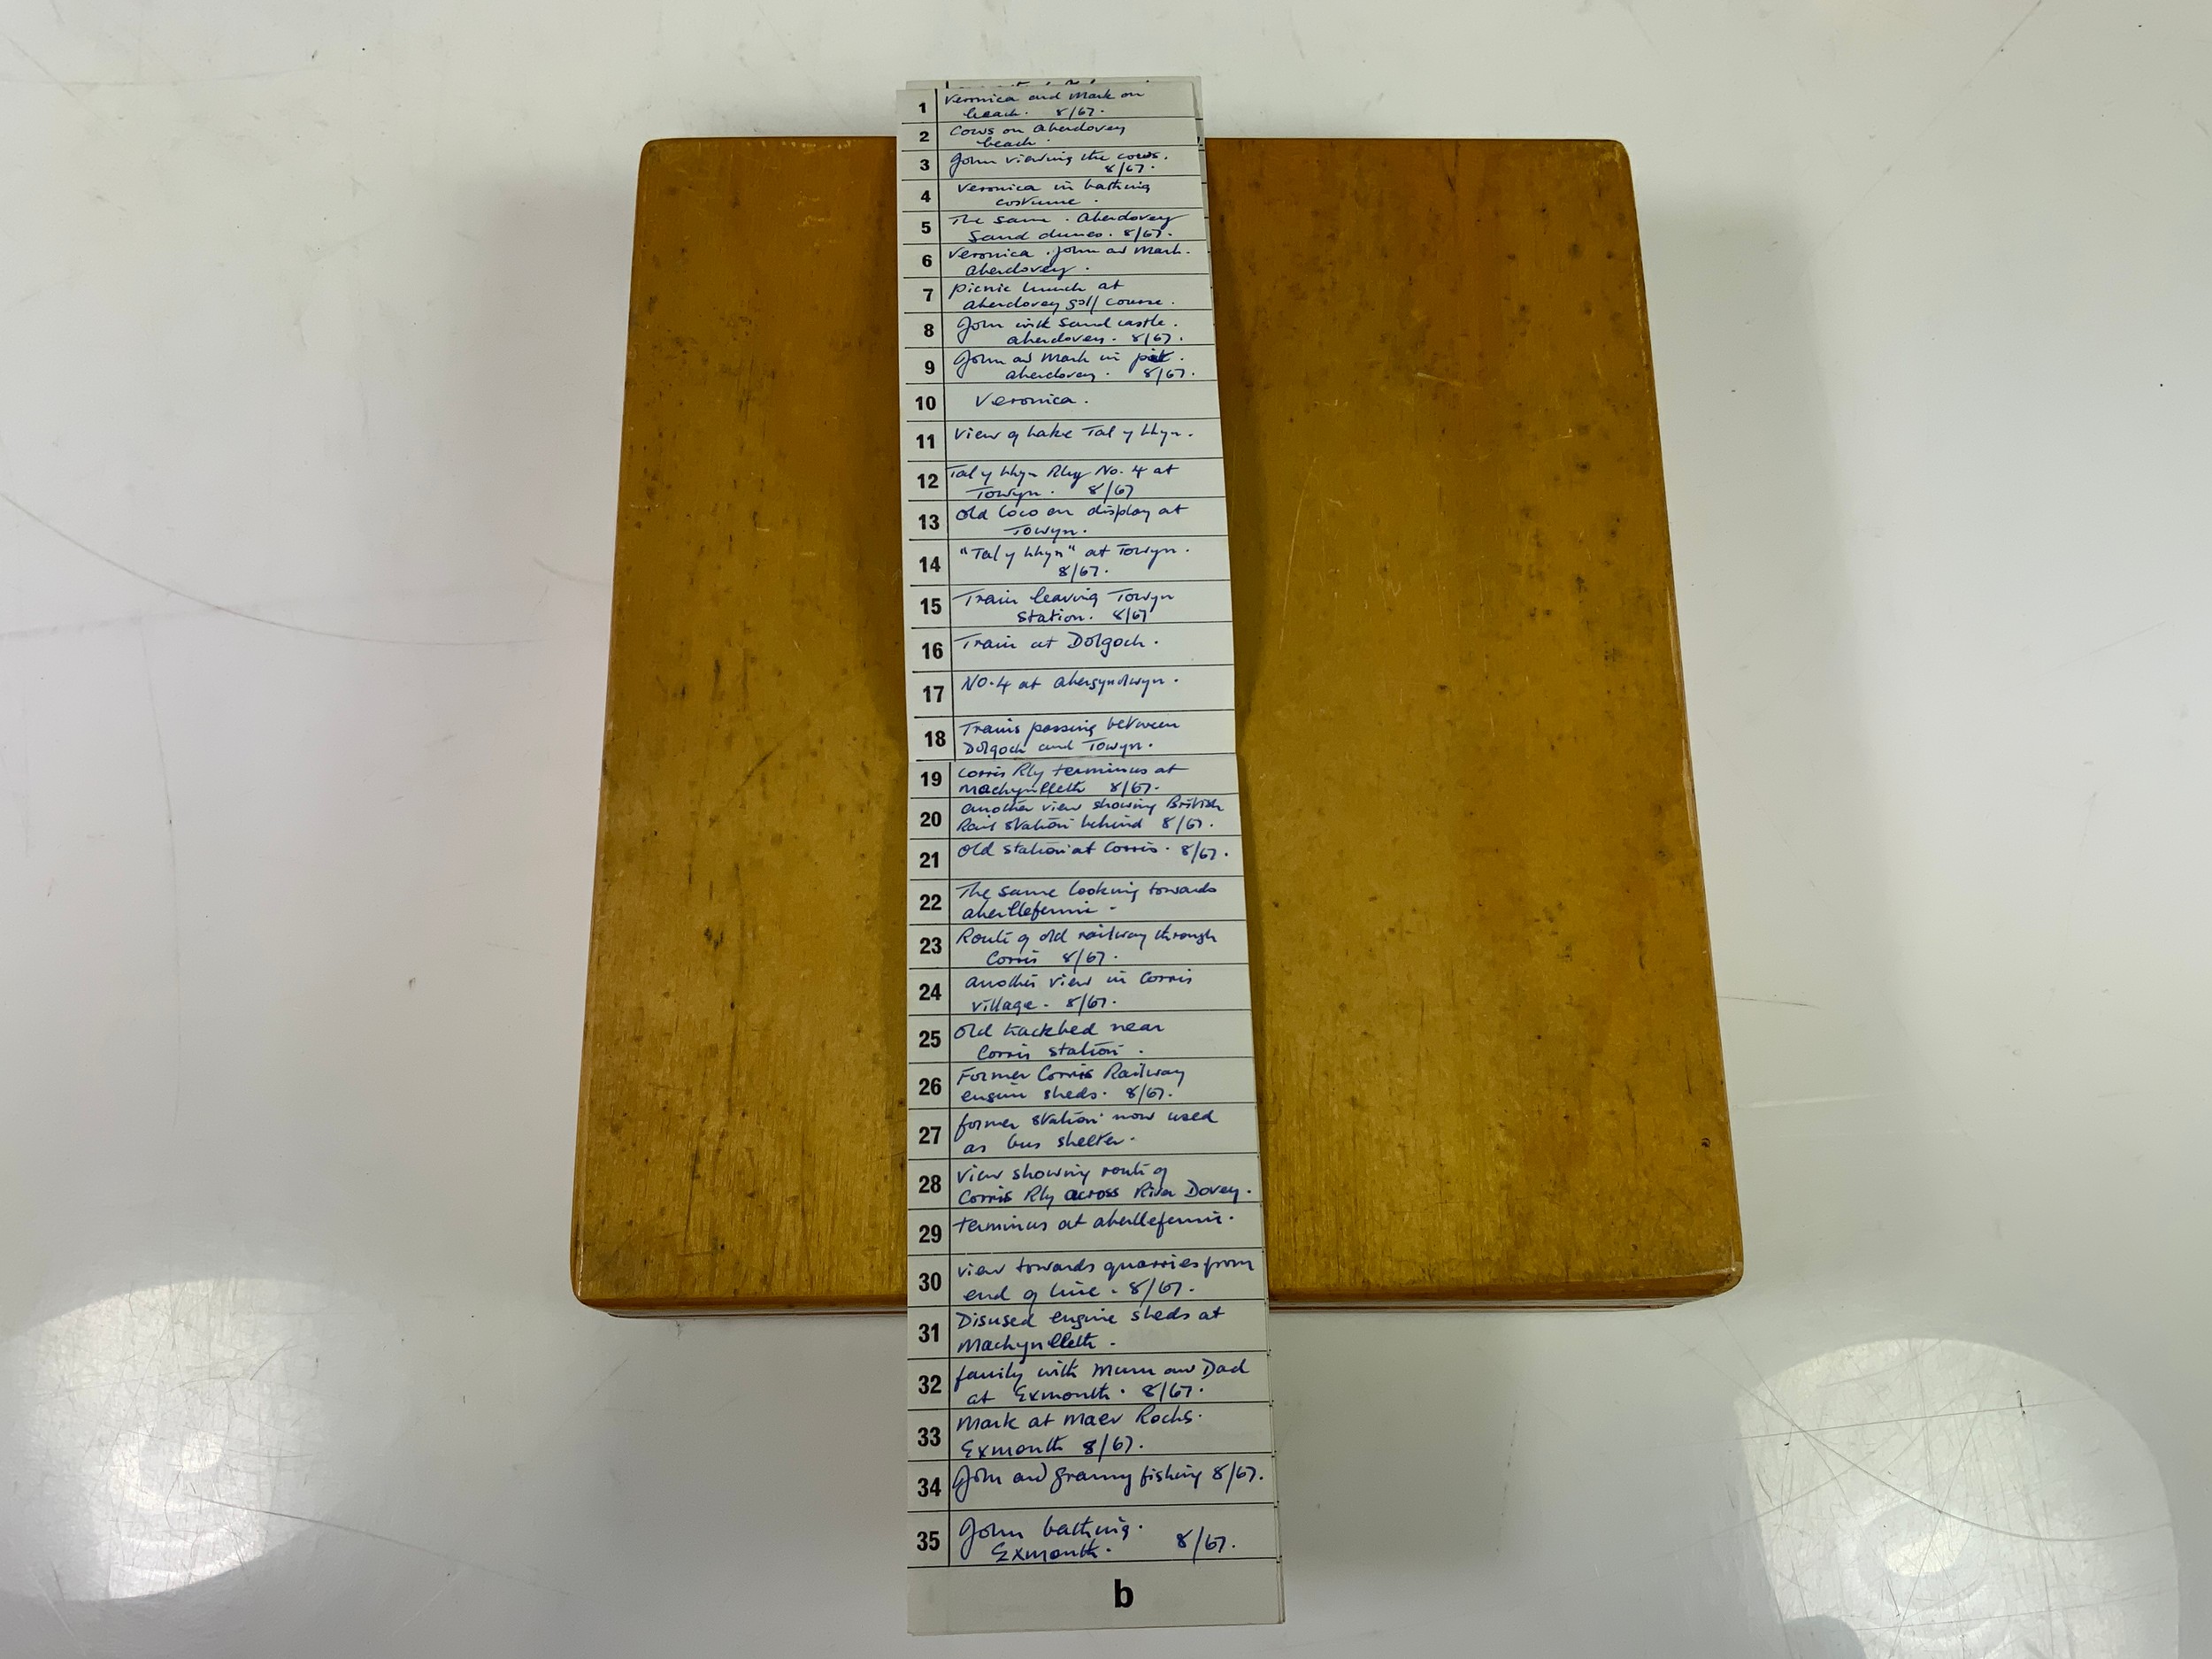 1 Veronica and Mark on
beach. 8/67.
2 Cows on Aberdovey
beach.
3 John viewing the cows.
8/67.
4 Veronica in bathing
costume.
5 The same. Aberdovey
Sand dunes. 8/67.
6 Veronica. John and Mark.
Aberdovey.
7 picnic lunch at
Aberdovey golf course.
8 John with Sand castle.
Aberdovey. 8/67.
9 John and Mark in pit.
Aberdovey. 8/67.
10 Veronica.
11 View of Lake Tal y Llyn.
12 Tal y Llyn Rly No. 4 at
Towyn. 8/67
13 Old Loco on display at
Towyn.
14 "Tal y Llyn" at Towyn.
8/67.
15 Train leaving Towyn
Station. 8/67
16 Train at Dolgoch.
17 No. 4 at Abergynolwyn.
18 Trains passing between
Dolgoch and Towyn.
19 Corris Rly terminus at
Machynlleth 8/67.
20 another view showing British
Rail Station behind 8/67.
21 Old Station at Corris. 8/67.
22 The same looking towards
aberllefenni.
23 Route of old railway through
Corris 8/67.
24 another view in Corris
village. 8/67.
25 Old trackbed near
Corris station.
26 Former Corris Railway
engine sheds. 8/67.
27 former station now used
as bus shelter.
28 View showing route of
Corris Rly across River Dovey.
29 terminus at aberllefenni.
30 view towards quarries from
end of line. 8/67.
31 Disused engine sheds at
Machynlleth.
32 family with Mum and Dad
at Exmouth. 8/67.
33 Mark at Maer Rocks.
Exmouth 8/67.
34 John and granny fishing 8/67.
35 John bathing.
Exmouth. 8/67.
b